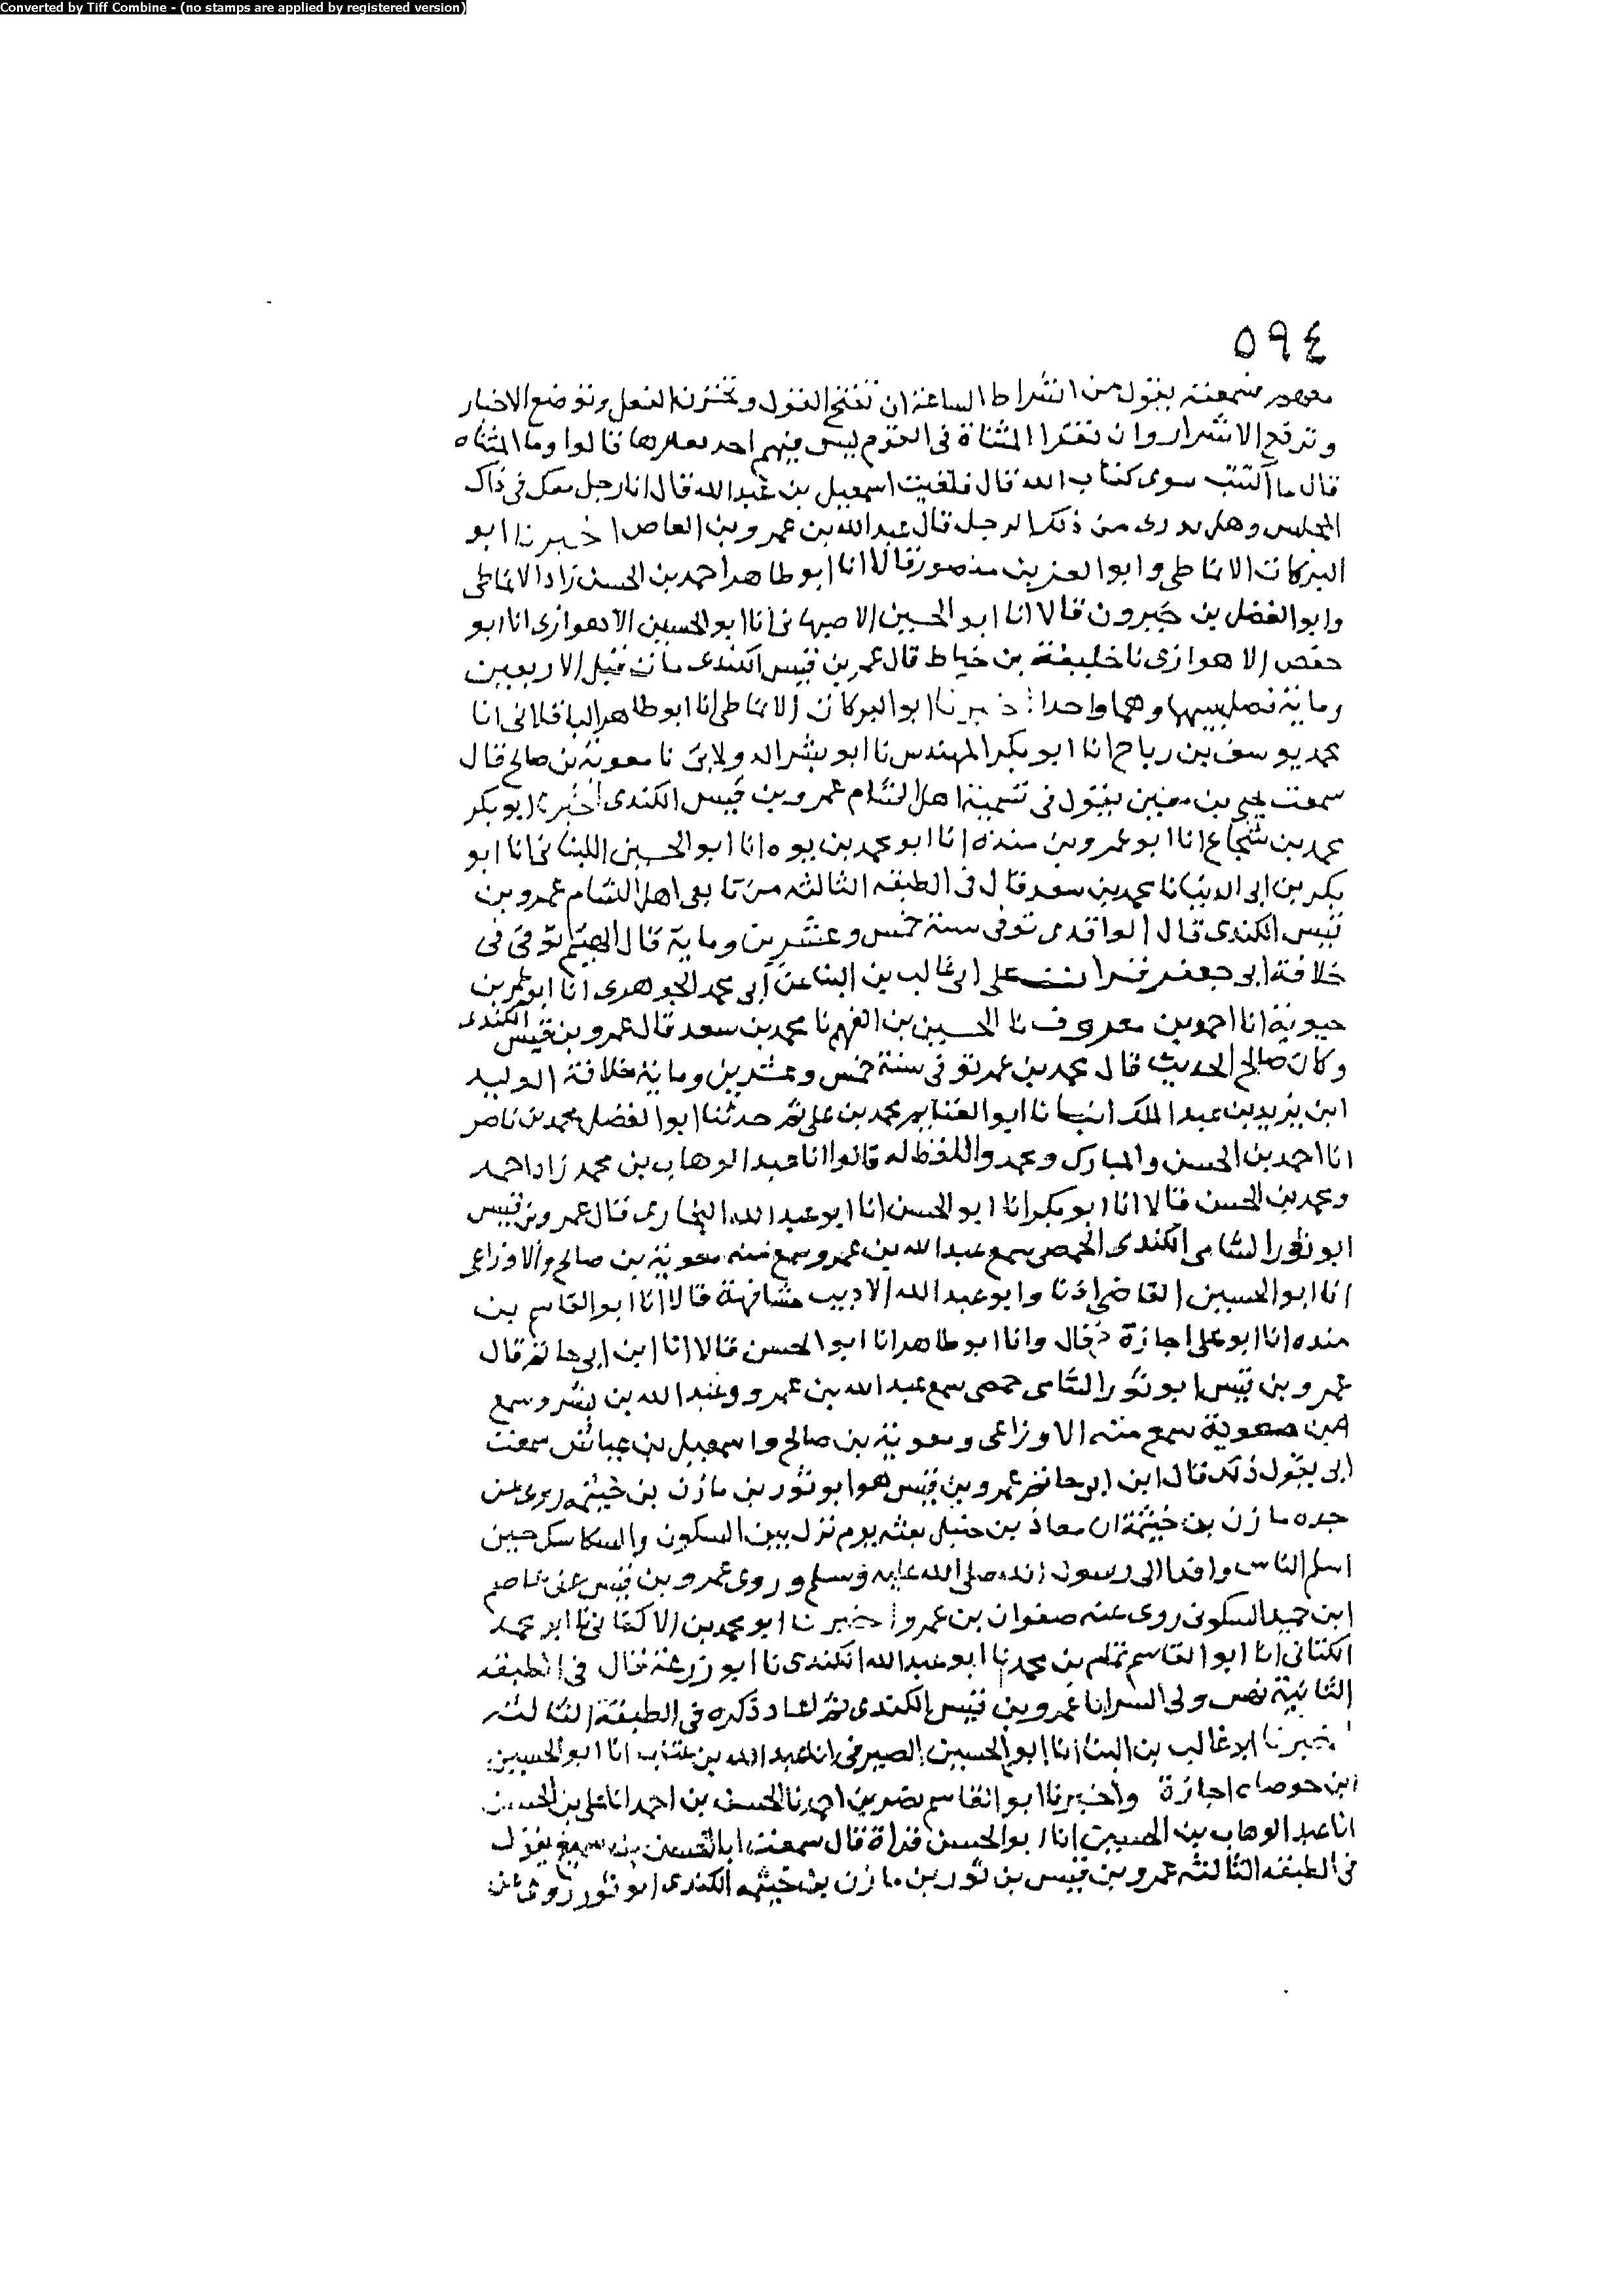 Converted by Tiff Combine - (no stamps are applied by registered version)
٥٩٤
فسمعته يقول من اشراط الساعة ان تفتح القول و تخزن الفعل و توضع الاخيار
و ترفع الاشرار وان تقترا المثناة فى القوم ليس فيهم احد قالوا وما المثناه
قال ما اكتتب سوى كتاب الله قال فلقيت اسمعيل بن عبدالله قال انا رجل معك فى ذاك
المجلس وهل يدرى من ذلك الرجل قال عبدالله بن عمرو بن العاص اخبرنا ابو
البركات الانماطى وابو العز بن منصور قالا انا ابو طاهر احمد بن الحسن زاد الانماطى
وابو الفضل بن خيرون قالا انا ابو الحسين الاصبهانى انا ابو الحسين الاهوازى انا ابو
حفص الاهوازى نا خليفة بن خياط قال عمر بن قيس الكندى مات قبل الاربعين
وماية وهما واحد اخبرنا ابو البركات الانماطى انا ابو طاهر الباقلانى انا
محمد يوسف بن رباح انا ابو بكر المهندس نا ابو بشر الدولابى نا معوية بن صالح قال
سمعت يحيى بن معين يقول فى تسمية اهل الشام عمرو بن قيس الكندى اخبرنا ابو بكر
محمد بن شجاع انا ابو عمرو بن منده انا ابو محمد بن يوه انا ابو الحسين اللبنانى انا ابو
بكر بن ابى الدنيا نا محمد بن سعد قال فى الطبقه الثالثه من تابعى اهل الشام عمرو بن
قيس الكندى قال الواقدى توفى سنة خمس وعشرين وماية قال الهيثم توفى فى
خلافة ابى جعفر قرات على ابى غالب بن البنا عن ابى محمد الجوهرى انا ابو عمر بن
حيوية انا احمد بن معروف نا الحسين بن الفهم نا محمد بن سعد قال عمرو بن قيس الكندى
وكان صالح الحديث قال محمد بن عمر توفى سنة خمس وعشرين وماية خلافة الوليد
ابن يزيد بن عبد الملك انبانا ابو الغنايم محمد بن على ثم حدثنا ابو الفضل محمد بن ناصر
انا احمد بن الحسن والمبارك ومحمد واللفظ له قالوا انا عبد الوهاب بن محمد زاد احمد
ومحمد بن الحسن قالا انا ابو بكر انا ابو الحسن انا ابو عبد الله البخارى قال عمرو بن قيس
ابو ثور الشامى الكندى الحمصى سمع عبد الله بن عمرو سمع منه معوية بن صالح والاوزاعى
انا ابو الحسين القاضى اذنا وابو عبد الله الاديب مشافهة قالا انا ابو القاسم بن
منده انا ابو على اجازة قال وانا ابو طاهر انا ابو الحسن قالا انا ابن ابى حاتم قال
عمرو بن قيس ابو ثور الشامى حمصى سمع عبد الله بن عمرو وعبد الله بن بسر وسمع
من معوية سمع منه الاوزاعى ومعوية بن صالح واسمعيل بن عياش سمعت
ابى يقول ذلك قال ابن ابى حاتم عمرو بن قيس هو ابو ثور بن مازن بن خيثمه روى عن
جده مازن بن خيثمة ان معاذ بن جبل بعثه يوم نزل بين السكون والسكاسك حين
اسلم الناس وافدا الى رسول الله صلى الله عليه وسلم وروى عمرو بن قيس عن عاصم
ابن حميد السكونى روى عنه صفوان بن عمرو اخبرنا ابو محمد بن الاكفانى نا ابو محمد
الكتانى انا ابو القاسم تمام بن محمد نا ابو عبد الله الكندى نا ابو زرعة قال فى الطبقه
الثانية ولى السرايا عمرو بن قيس الكندى ثم اعاد ذكره فى الطبقة الثالثه
اخبرنا ابو غالب بن البنا انا ابو الحسين الصيرفى انا عبد الله بن عتاب انا ابو الحسين
ابن حوصا اجازة واخبرنا ابو القاسم نصر بن احمد نا الحسن بن احمد انا على بن الحسن
انا عبد الوهاب بن الحسين انا ابو الحسن قراة قال سمعت ابا الحسن بن سميع يقول
فى الطبقه الثالثه عمرو بن قيس بن ثور بن مازن بن خيثمه الكندى ابو ثور